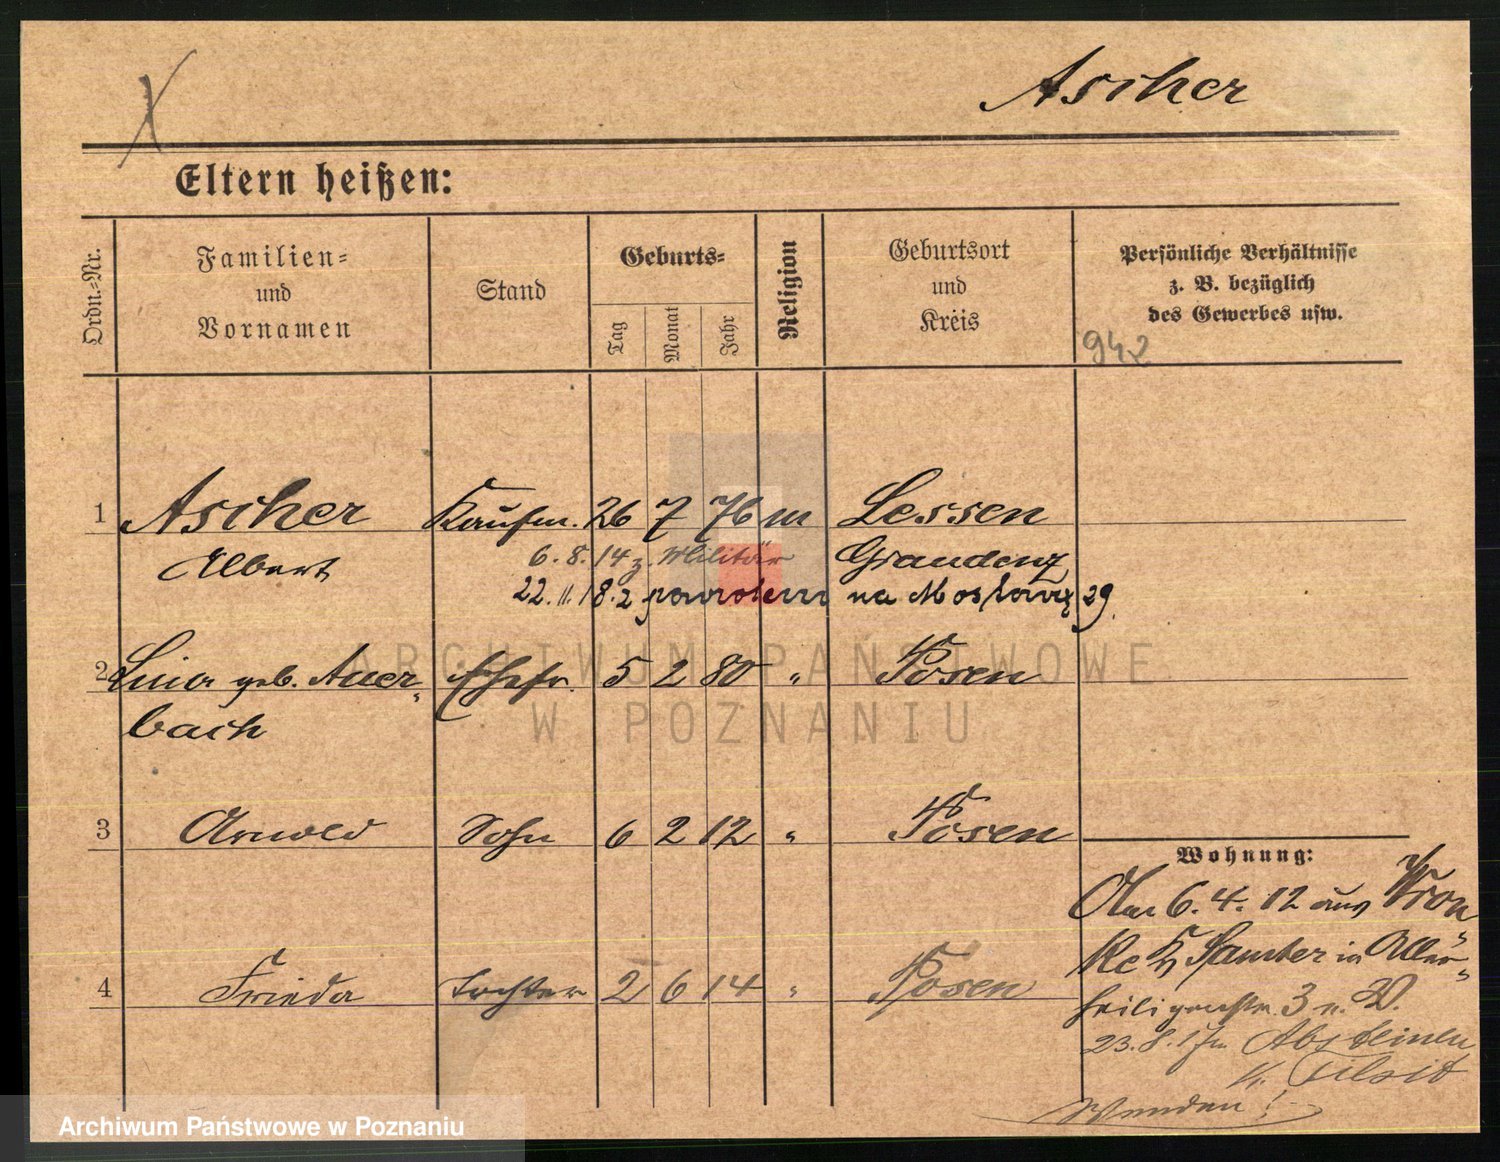 Ascher
Eltern heißen:
Ordn.-Nr.
Familien-
und
Vornamen
Stand
Geburts-
Tag
Monat
Jahr
Religion
Geburtsort
und
Kreis
Persönliche Verhältnisse
z. B. bezüglich
des Gewerbes usw.
942
1 Ascher Kaufm. 26 7 76 m Lessen
Albert 6.8.14 z. Militär Graudenz
22.11.18. z powrotem na Mostową 29.
2 geb. Auer- Ehefr. 5 2 80 " Posen
bach
3 Arnold Sohn 6 2 12 " Posen
4 Frieda Tochter 2 6 14 " Posen
Wohnung:
6.4.12 aus Wron-
ke Kr Samter in Aller-
heiligenstr. 3 n. W.
23.8.17 n Absteinen
Kr. Tilsit
Wenden!
ARCHIWUM PAŃSTWOWE
W POZNANIU
Archiwum Państwowe w Poznaniu